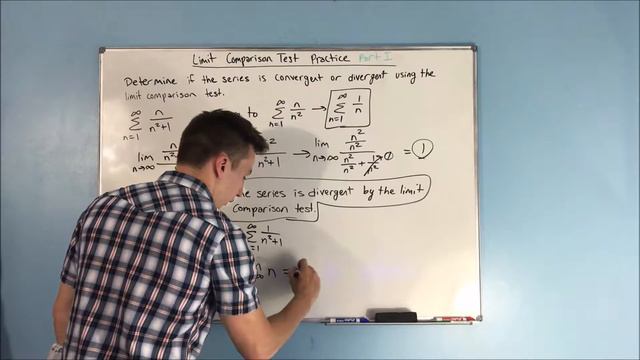 Limit Comparison Test Practice Part I
Determine if the series is convergent or divergent using the
limit comparison test.
∞ ∑ n=1 n/(n²+1) to ∞ ∑ n=1 n/n² → ∞ ∑ n=1 1/n
lim n→∞ 2/(n²+1) → lim n→∞ (n²/n²)/(n²/n² + 1/n²) 0 = 1
series is divergent by the limit
comparison test.
∞ ∑ =1 1/(n²+1)
n =